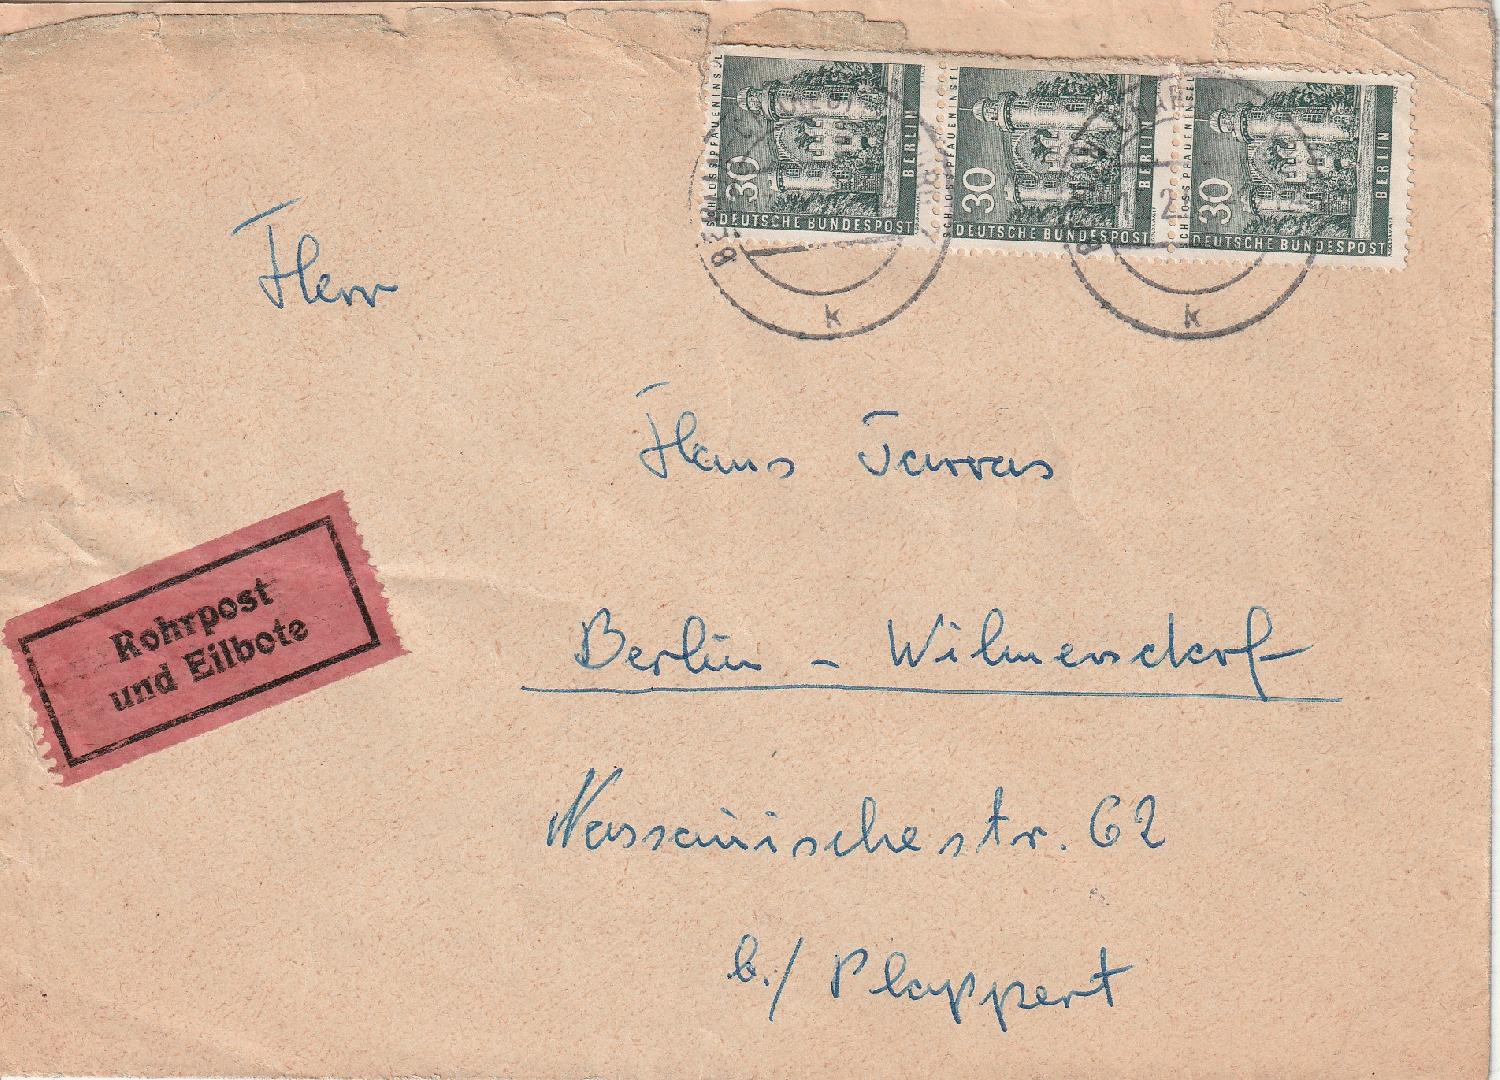 SCHLOSS PFAUENINSEL
30
BERLIN
DEUTSCHE BUNDESPOST
SCHLOSS PFAUENINSEL
30
BERLIN
DEUTSCHE BUNDESPOST
SCHLOSS PFAUENINSEL
30
BERLIN
DEUTSCHE BUNDESPOST
k
k
Herr
Hans Tarras
Rohrpost
und Eilbote
Berlin - Wilmersdorf
Nassauischestr. 62
b./ Plappert